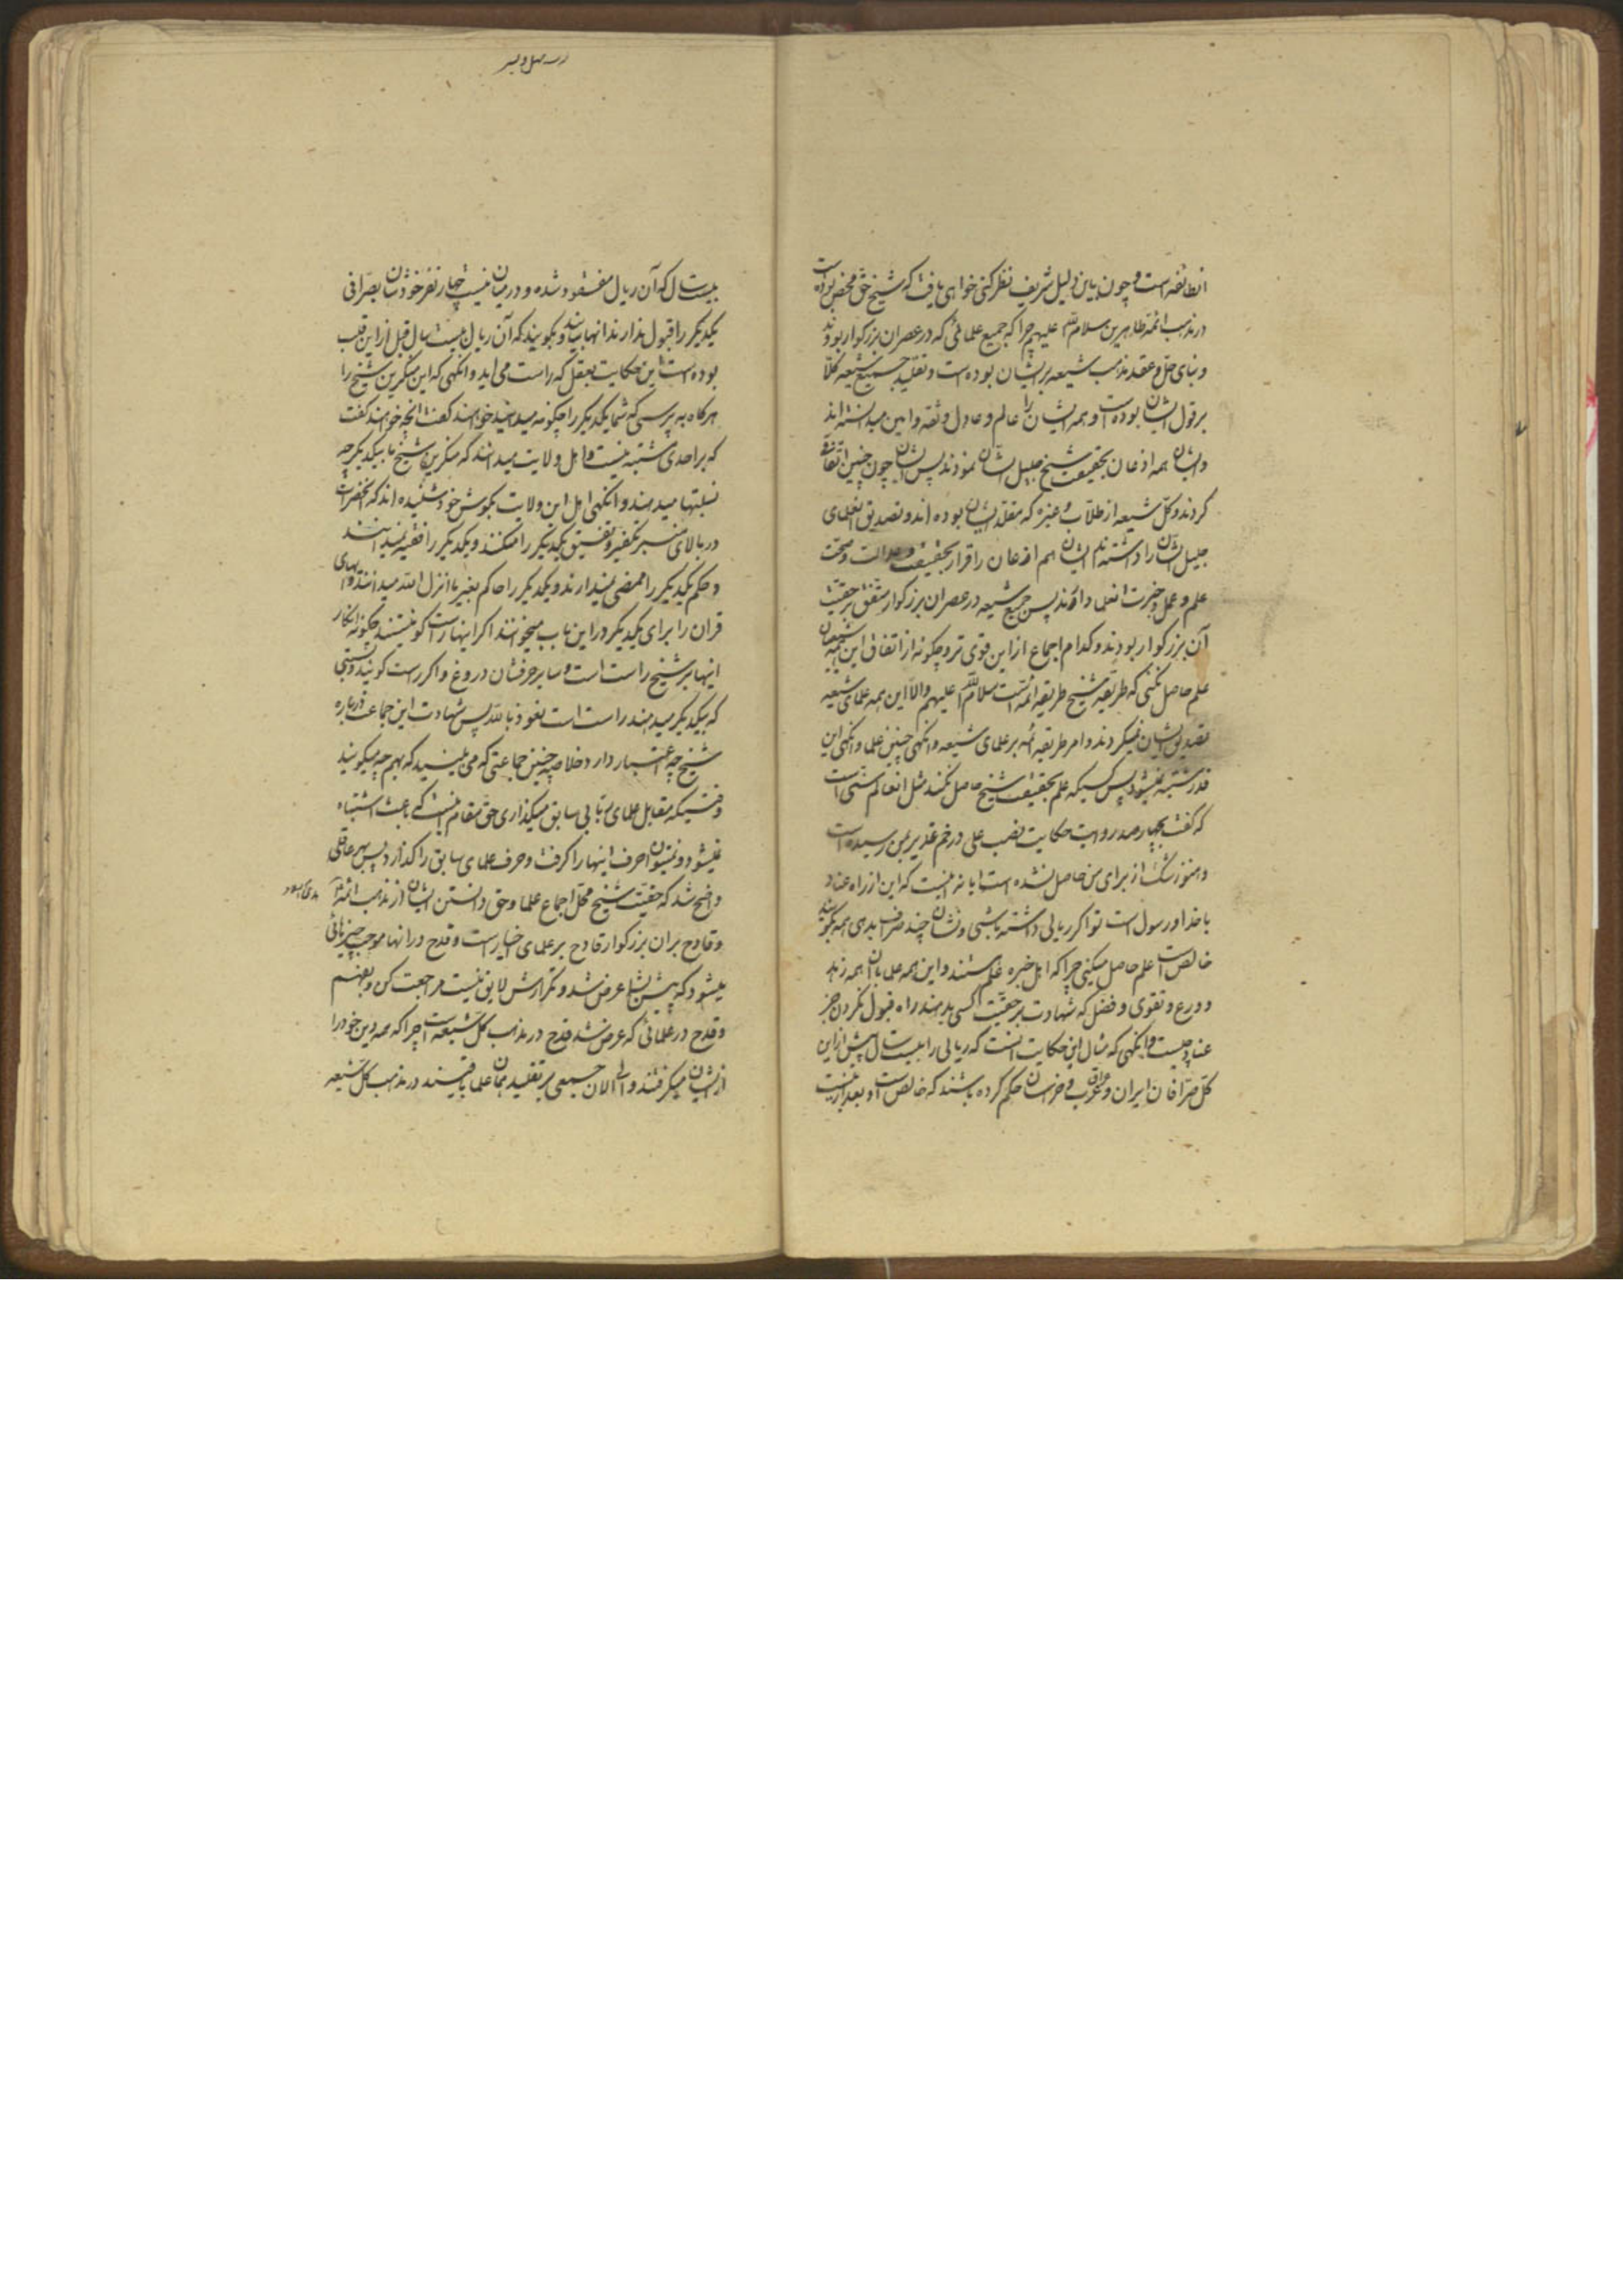 انطائفه است و چون باین دلیل شریف نظر کنی خواهی یافت که شیخ حق محض بوده است
در مذهب ائمه طاهرین سلام الله علیهم چرا که جمیع علمائی که در عصر ان بزرکوار بودند
و بنای حل و عقد مذهب شیعه بر ایشان بوده است و تقلید جمیع شیعه کلا
بر قول ایشان بوده است و همه ایشان را عالم و عادل و ثقه و امین میدانسته اند
و ایشان همه اذعان بحقیقت شیخ جلیل الشان نمودند پس ایشان چون چنین اتفاق
کردند و کل شیعه از طلاب و غیره که مقلد ایشان بوده اند و تصدیق انعلمای
جلیل الشان را داشته اند ایشان هم اذعان و اقرار بحقیقت و عدالت و صحت
علم و عمل و خبرت انعلما دارند پس جمیع شیعه در عصر ان بزرکوار متفق بر حقیت
آن بزرکوار بودند و کدام اجماع از این قوی تر و چکونه از اتفاق این همه شیعیان
علم حاصل نکنی که طریقه شیخ طریقه ائمه است سلام الله علیهم و الا این همه علمای شیعه
تصدیق ایشان نمیکردند و امر طریقه ائمه بر علمای شیعه وانکهی چنین علما وانکهی این
قدر مشتبه نمیشود پس کسیکه علم بحقیقت شیخ حاصل نکند مثل انعالم سنی است
که کفت بچهار صد روایت حکایت نصب علی در خم غدیر بمن رسیده است
و هنوز شک از برای من حاصل نشده است ایا نه اینست که این از راه عناد
با خدا و رسول است تو اکر ریالی داشته باشی و نشان چند صراف بدهی همه بکویند
خالص است علم حاصل میکنی چرا که اهل خبره علم هستند و این همه علما با ان همه زهد
و ورع و تقوی و فضل که شهادت بر حقیت کسی بدهند راه قبول نکردن جز
عناد چیست وانکهی که مثال این حکایت انست که ریالی را بیست سال پیش از این
کل صرافان ایران و عراق و عرب و خراسان حکم کرده باشند که خالص است و بعد از بیست
بیست سال که آن ریال مفقود شده و در میان نیست چهار نفر خودشان بصرافی
یکدیکر را قبول ندارند انها بیایند و بکویند که آن ریال بیست سال قبل از این قلب
بوده است این حکایت بعقل که راست می اید وانکهی که این منکرین شیخ را
هرکاه بپرسی که شما یکدیکر را چکونه میدانید خواهند کفت انچه خواهند کفت
که بر احدی مشتبه نیست و اهل ولایت میدانند که منکرین شیخ ما بیکدیکر چه
نسبتها میدهند وانکهی اهل این ولایت بکوش خود شنیده اند که انحضرات
در بالای منبر تکفیر و تفسیق یکدیکر را میکنند و یکدیکر را فقیه نمیدانند
و حکم یکدیکر را ممضی نمیدارند و یکدیکر را حاکم بغیر ما انزل الله میدانند و ایهای
قران را برای یکدیکر در این باب میخوانند اکر اینها راست کو نیستند چکونه انکار
اینها بر شیخ راست است و سایر حرفشان دروغ و اکر راست کویند و نسبتی
که بیکدیکر میدهند راست است نعوذ بالله پس شهادت این جماعت درباره
شیخ چه اعتبار دارد خلاصه چنین جماعتی که می بینید که بهم چه میکویند
وقتیکه مقابل علمای ربانی سابق میکذاری حق مقام اینست که باعث اشتباه
نمیشود و نمیتوان حرف اینها را کرفت و حرف علمای سابق را کذارد پس بهر عاقلی
واضح شد که حقیت شیخ محل اجماع علما و حق دانستن ایشان از مذهب ائمه
و قادح بران بزرکوار قادح بر علمای اخیار است و قدح در انها موجب چیزهائی
میشود که پیش بشما عرض شد و تکرارش لایق نیست مراجعت کن و بفهم
و قدح در علمائی که عرض شد قدح در مذهب کل شیعه است چرا که همه دین خود را
از ایشان میکرفتند و الی الان جمعی بر تقلید همان علما باقیند در مذهب کل شیعه